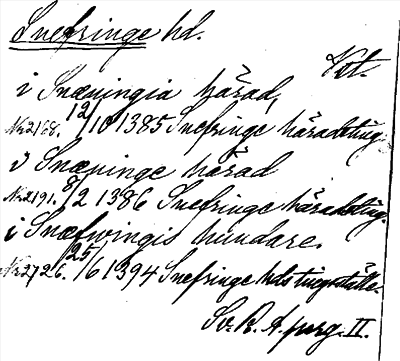 Snefringe hd.
Vst.
i Snæningia härad,
Nr 2168. 12/10 1385 Snefringe häradsting.
i Snæninge härad
Nr 2191. 8/2 1386 Snefringe häradsting.
i Snæfwringis hundare.
Nr 2726. 25/6 1394 Snefringe hds tingställe.
Sv. R. A. perg. II.